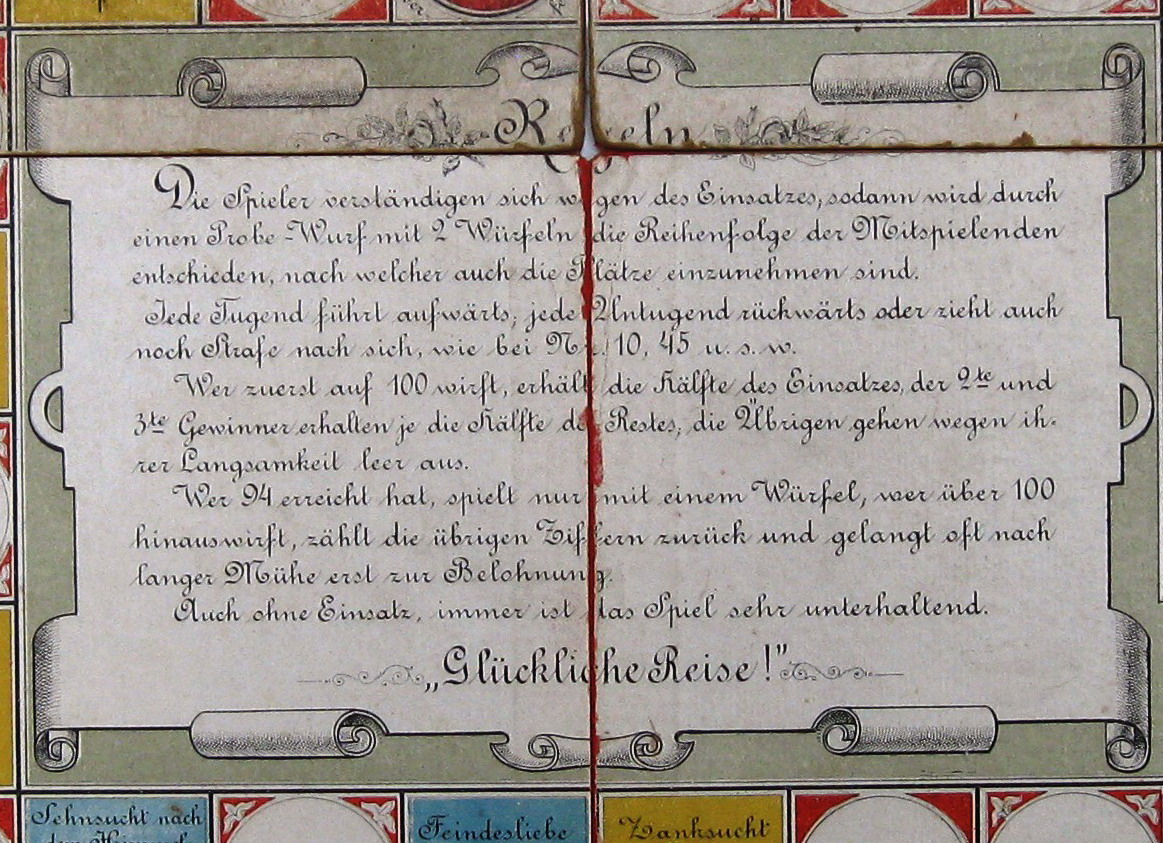 Regeln
Die Spieler verständigen sich wegen des Einsatzes, sodann wird durch
einen Probe-Wurf mit 2 Würfeln die Reihenfolge der Mitspielenden
entschieden, nach welcher auch die Plätze einzunehmen sind.
Jede Tugend führt aufwärts, jede Untugend rückwärts oder zieht auch
noch Strafe nach sich, wie bei Nr. 10, 45 u. s. w.
Wer zuerst auf 100 wirft, erhält die Hälfte des Einsatzes, der 2te und
3te Gewinner erhalten je die Hälfte des Restes, die Übrigen gehen wegen ih-
rer Langsamkeit leer aus.
Wer 94 erreicht hat, spielt nur mit einem Würfel, wer über 100
hinauswirft, zählt die übrigen Ziffern zurück und gelangt oft nach
langer Mühe erst zur Belohnung.
Auch ohne Einsatz, immer ist das Spiel sehr unterhaltend.
„Glückliche Reise!"
Sehnsucht nach
dem Himmel
Feindesliebe
Zanksucht